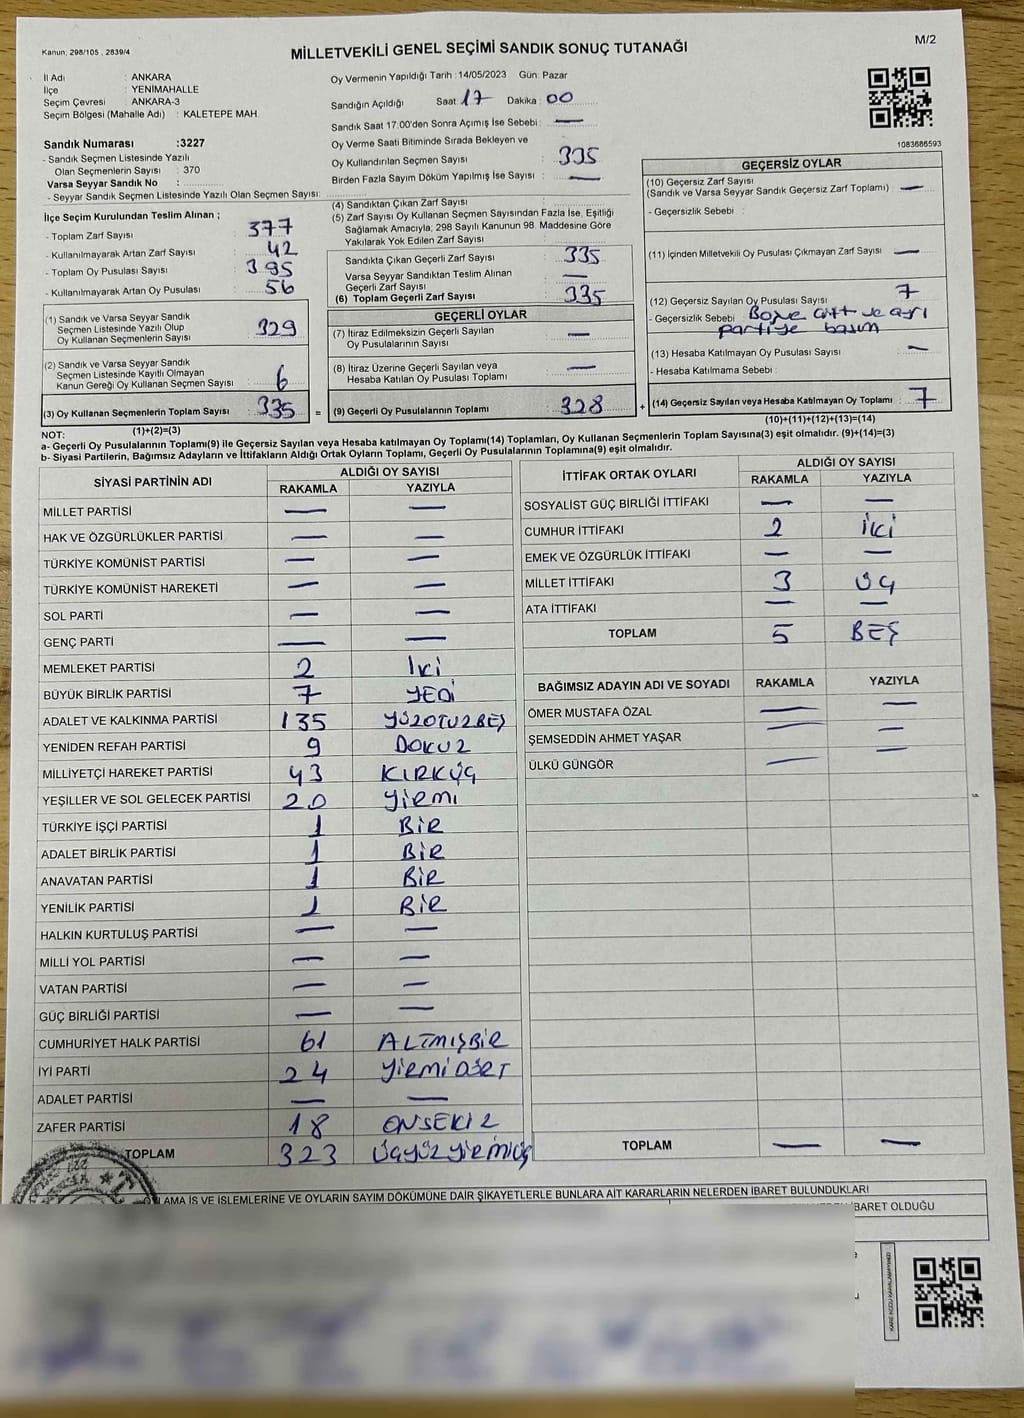 Kanun; 298/105 , 2839/4
MİLLETVEKİLİ GENEL SEÇİMİ SANDIK SONUÇ TUTANAĞI
M/2
İl Adı : ANKARA
İlçe : YENİMAHALLE
Seçim Çevresi : ANKARA-3
Seçim Bölgesi (Mahalle Adı) : KALETEPE MAH.
Oy Vermenin Yapıldığı Tarih : 14/05/2023 Gün: Pazar
Sandığın Açıldığı Saat: 17 Dakika : 00
Sandık Saat 17.00'den Sonra Açımış İse Sebebi : —
Oy Verme Saati Bitiminde Sırada Bekleyen ve
Oy Kullandırılan Seçmen Sayısı : 335
Birden Fazla Sayım Döküm Yapılmış İse Sayısı : —
1083686593
Sandık Numarası :3227
- Sandık Seçmen Listesinde Yazılı
Olan Seçmenlerin Sayısı : 370
Varsa Seyyar Sandık No :
- Seyyar Sandık Seçmen Listesinde Yazılı Olan Seçmen Sayısı:
İlçe Seçim Kurulundan Teslim Alınan ;
- Toplam Zarf Sayısı : 377
- Kullanılmayarak Artan Zarf Sayısı : 42
- Toplam Oy Pusulası Sayısı : 395
- Kullanılmayarak Artan Oy Pusulası : 56
(1) Sandık ve Varsa Seyyar Sandık
Seçmen Listesinde Yazılı Olup
Oy Kullanan Seçmenlerin Sayısı : 329
(2) Sandık ve Varsa Seyyar Sandık
Seçmen Listesinde Kayıtlı Olmayan
Kanun Gereği Oy Kullanan Seçmen Sayısı : 6
(3) Oy Kullanan Seçmenlerin Toplam Sayısı : 335
(1)+(2)=(3)
(4) Sandıktan Çıkan Zarf Sayısı :
(5) Zarf Sayısı Oy Kullanan Seçmen Sayısından Fazla İse, Eşitliği
Sağlamak Amacıyla; 298 Sayılı Kanunun 98. Maddesine Göre
Yakılarak Yok Edilen Zarf Sayısı :
Sandıkta Çıkan Geçerli Zarf Sayısı : 335
Varsa Seyyar Sandıktan Teslim Alınan
Geçerli Zarf Sayısı : —
(6) Toplam Geçerli Zarf Sayısı : 335
GEÇERLİ OYLAR
(7) İtiraz Edilmeksizin Geçerli Sayılan
Oy Pusulalarının Sayısı : —
(8) İtiraz Üzerine Geçerli Sayılan veya
Hesaba Katılan Oy Pusulası Toplamı : —
= (9) Geçerli Oy Pusulalarının Toplamı : 328
GEÇERSİZ OYLAR
(10) Geçersiz Zarf Sayısı
(Sandık ve Varsa Seyyar Sandık Geçersiz Zarf Toplamı) : —
- Geçersizlik Sebebi :
(11) İçinden Milletvekili Oy Pusulası Çıkmayan Zarf Sayısı : —
(12) Geçersiz Sayılan Oy Pusulası Sayısı : 7
- Geçersizlik Sebebi : ve ayrı
partiye basım
(13) Hesaba Katılmayan Oy Pusulası Sayısı : —
- Hesaba Katılmama Sebebi :
+ (14) Geçersiz Sayılan veya Hesaba Katılmayan Oy Toplamı : 7
(10)+(11)+(12)+(13)=(14)
NOT:
a- Geçerli Oy Pusulalarının Toplamı(9) ile Geçersiz Sayılan veya Hesaba katılmayan Oy Toplamı(14) Toplamları, Oy Kullanan Seçmenlerin Toplam Sayısına(3) eşit olmalıdır. (9)+(14)=(3)
b- Siyasi Partilerin, Bağımsız Adayların ve İttifakların Aldığı Ortak Oyların Toplamı, Geçerli Oy Pusulalarının Toplamına(9) eşit olmalıdır.
SİYASİ PARTİNİN ADI ALDIĞI OY SAYISI
RAKAMLA YAZIYLA
MİLLET PARTİSİ — —
HAK VE ÖZGÜRLÜKLER PARTİSİ — —
TÜRKİYE KOMÜNİST PARTİSİ — —
TÜRKİYE KOMÜNİST HAREKETİ — —
SOL PARTİ — —
GENÇ PARTİ — —
MEMLEKET PARTİSİ 2 İki
BÜYÜK BİRLİK PARTİSİ 7 YEDİ
ADALET VE KALKINMA PARTİSİ 135 YÜZOTUZBEŞ
YENİDEN REFAH PARTİSİ 9 DOKUZ
MİLLİYETÇİ HAREKET PARTİSİ 43 KIRKÜÇ
YEŞİLLER VE SOL GELECEK PARTİSİ 20 Yirmi
TÜRKİYE İŞÇİ PARTİSİ 1 BİR
ADALET BİRLİK PARTİSİ 1 BİR
ANAVATAN PARTİSİ 1 BİR
YENİLİK PARTİSİ 1 BİR
HALKIN KURTULUŞ PARTİSİ — —
MİLLİ YOL PARTİSİ — —
VATAN PARTİSİ — —
GÜÇ BİRLİĞİ PARTİSİ — —
CUMHURİYET HALK PARTİSİ 61 ALTMIŞBİR
İYİ PARTİ 24 YirmiDÖRT
ADALET PARTİSİ — —
ZAFER PARTİSİ 18 ONSEKİZ
TOPLAM 323 Üçyüzyirmiüç
İTTİFAK ORTAK OYLARI ALDIĞI OY SAYISI
RAKAMLA YAZIYLA
SOSYALİST GÜÇ BİRLİĞİ İTTİFAKI — —
CUMHUR İTTİFAKI 2 İki
EMEK VE ÖZGÜRLÜK İTTİFAKI — —
MİLLET İTTİFAKI 3 ÜÇ
ATA İTTİFAKI — —
TOPLAM 5 BEŞ
BAĞIMSIZ ADAYIN ADI VE SOYADI RAKAMLA YAZIYLA
ÖMER MUSTAFA ÖZAL — —
ŞEMSEDDİN AHMET YAŞAR — —
ÜLKÜ GÜNGÖR — —
TOPLAM — —
LAMA İŞ VE İŞLEMLERİNE VE OYLARIN SAYIM DÖKÜMÜNE DAİR ŞİKAYETLERLE BUNLARA AİT KARARLARIN NELERDEN İBARET BULUNDUKLARI
İBARET OLDUĞU